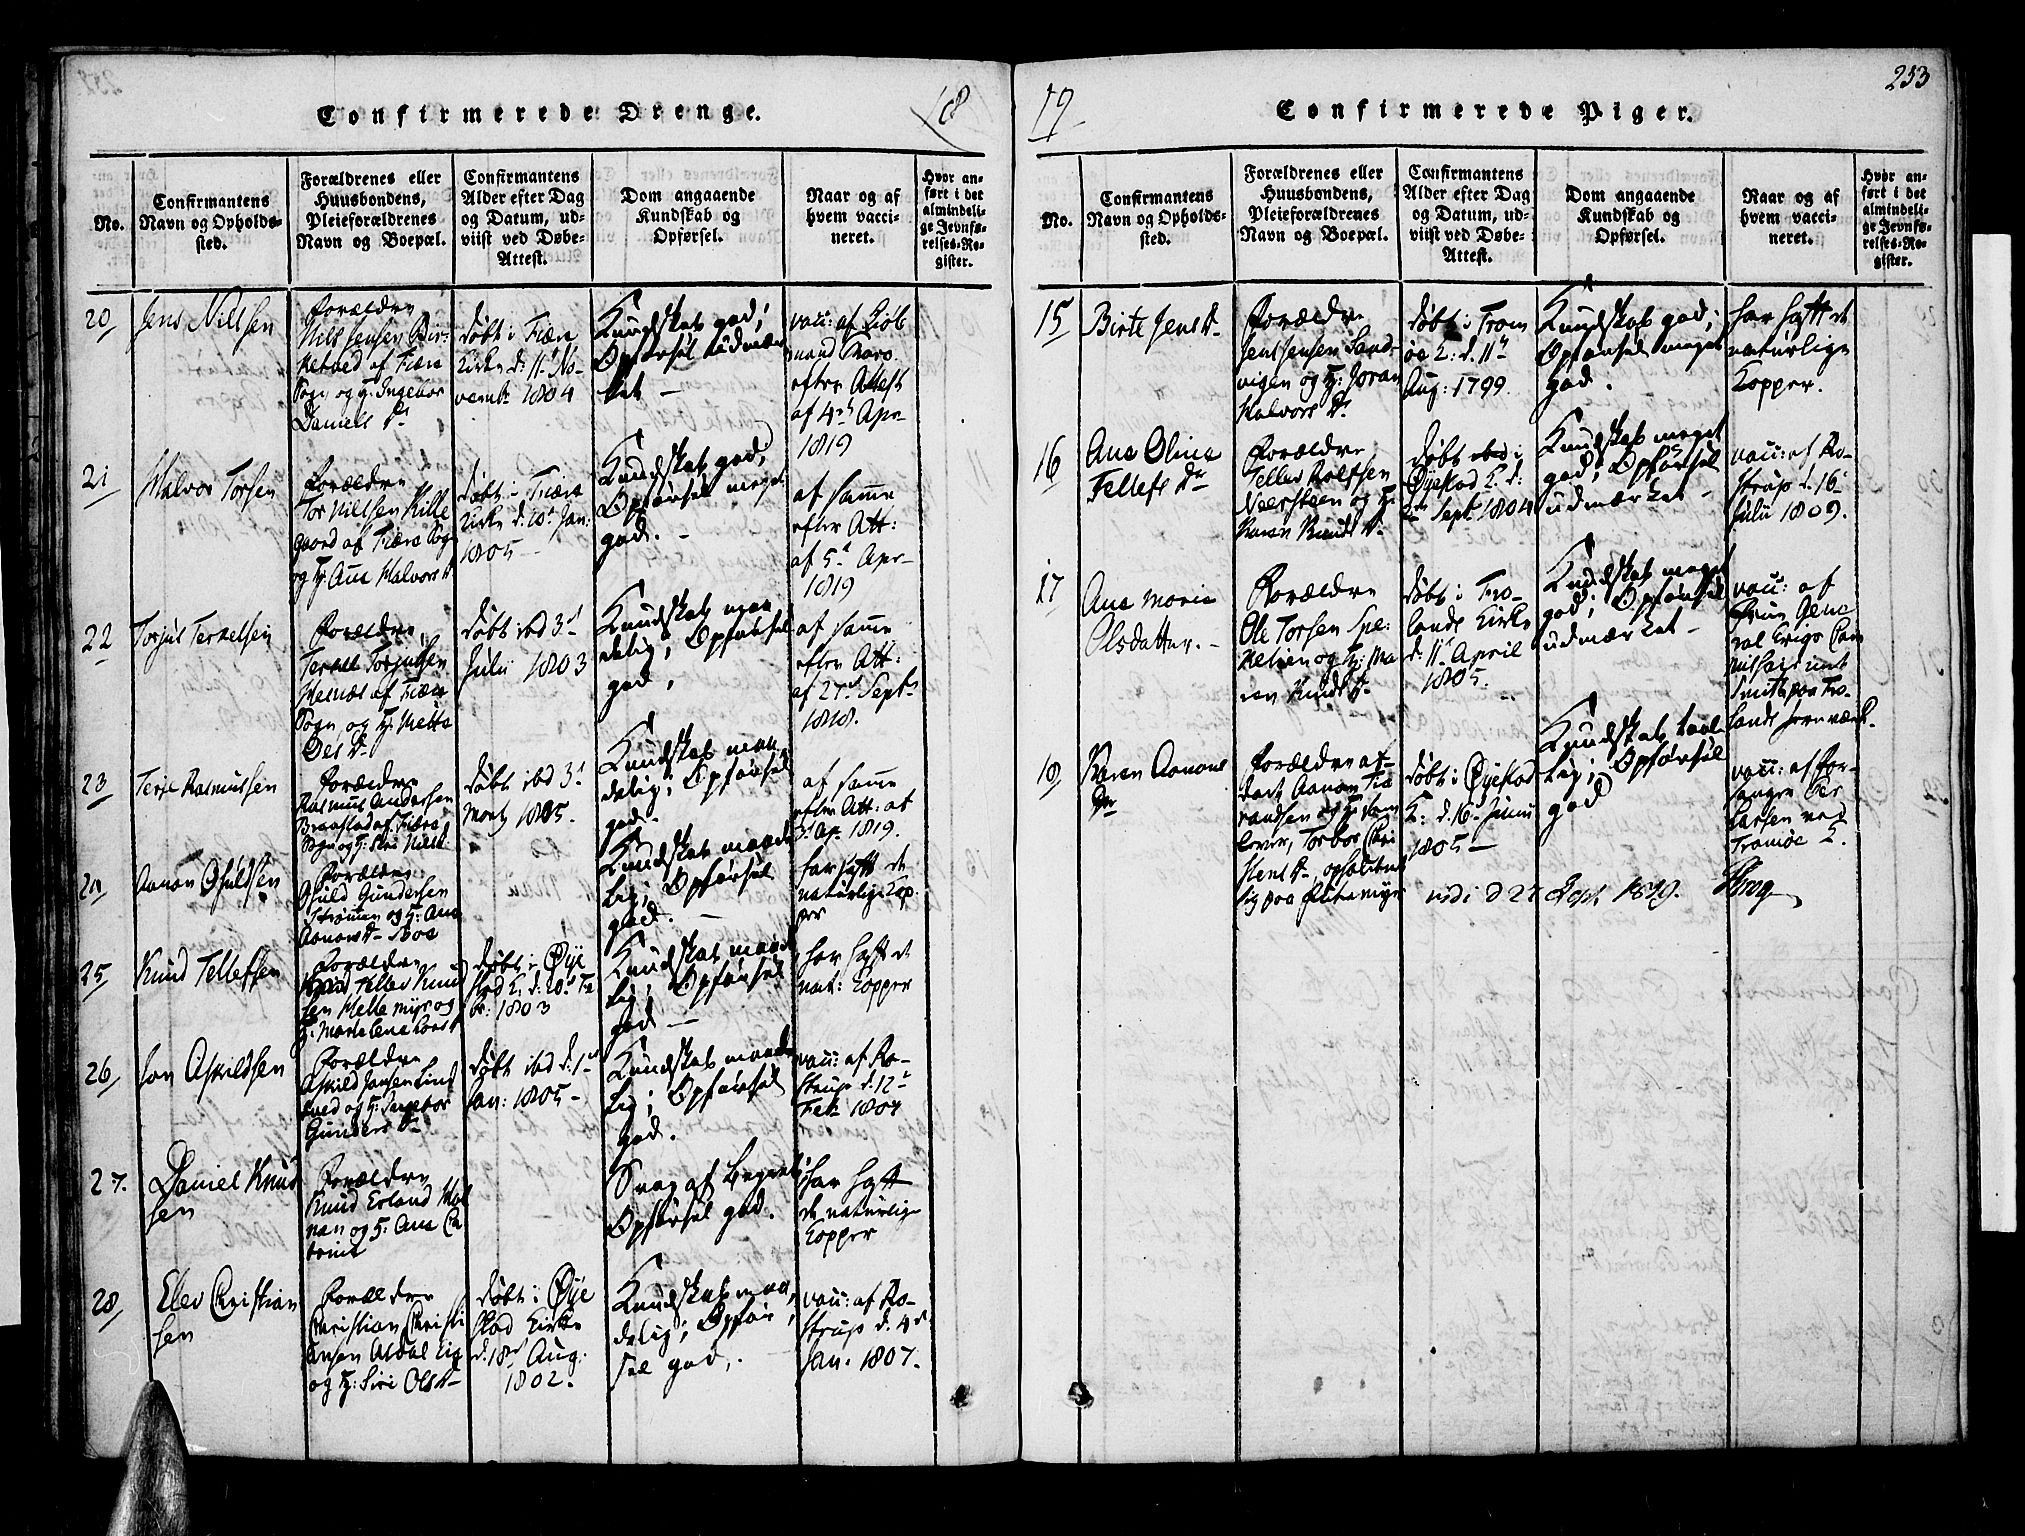 Confirmerede Drenge.
18
No.
Confirmantens
Navn og Opholds-
sted.
Forældrenes eller
Huusbondens,
Pleieforældrenes
Navn og Boepæl.
Confirmantens
Alder efter Dag
og Datum, ud-
viist ved Døbe-
Attest.
Dom angaaende
Kundskab og
Opførsel.
Naar og af
hvem vacci-
neret.
Hvor an-
ført i det
almindeli-
ge Jevnfø-
relses-Re-
gister.
20
Jens Nielsen
Forældre
Niels Jensen Bir-
ketved af Fiære
Sogn og H: Ingebor
Daniels D.
døbt i Fiære
Kirke d: 11t No-
vembr 1804
Kundskab god;
Opførsel udmær-
ket —
vacc: af
efter Attest
af 4de Apr
1819
21
Halvor Torsen
Forældre
Tor Nielsen Kille
gaard af Fiære Sogn
og H: Ane Halvors D
døbt i Fiære
Kirke d: 10t Jan:
1805 —
Kundskab god,
Opførsel meget
god. —
af samme
efter Att:
af 5t Apr
1819
22
Torjus Terkelsen
Forældre
Terkel Torjussen
Hesnæs af Fiære
Sogn og H: Mette
Oles D
døbt ibd 3d
Julii 1803
Kundskab maa
delig; Opførsel
god,
af samme
efter Att:
af 27d Septr
1818.
23
Terje Rasmussen
Forældre
Rasmus Andersen
Braastad af Fiære
Sogn og H: Siri Niels D
døbt ibd 3d
Marts 1805.
Kundskab maa
delig; Opførsel
god.
af samme
efter Att: af
3d Ap: 1819.
24
Aanon Osuldsen
Forældre
Osuld Gundersen
Strømmen og H: Ane
Aanons D
Kundskab maade
lig; Opførsel
god. —
har haft de
naturlige Kop
per
25
Knud Tellefsen
Forældre
Tellev Knud
sen Hellemyr og
H:
døbt i Øye
stad K. d. 20d Fe
br: 1803
Kundskab maade
lig; Opførsel
god —
har haft de
nat: Kopper
26
Jon Askildsen
Forældre
Askild Jonsen Lind
tved og H: Ingebor
Gunders D
døbt ibd d: 1ste
Jan: 1805 —
Kundskab maade
lig; Opførsel
god.
vacc: af Ro-
strup d. 12te
Feb: 1807
27.
Daniel Knud
sen
Forældre
Knud Erland
og H: Ane Ca
trine
Svag af Begreb,
Opførsel god.
har haft
de naturlige
Kopper
28
Elev Christian
sen
Forældre
Christian Christi
ansen Asdal
og H: Siri Ols D
døbt i Øye
stad Kirke
d. 18de Aug:
1802.
Kundskab maa
delig; Opfør
sel god. —
vacc: af Ro-
strup d. 4de
Jan. 1807.
19
Confirmerede Piger.
253
No.
Confirmantens
Navn og Opholds-
sted.
Forældrenes eller
Huusbondens,
Pleieforældrenes
Navn og Boepæl.
Confirmantens
Alder efter Dag
og Datum, ud-
viist ved Døbe-
Attest.
Dom angaaende
Kundskab og
Opførsel.
Naar og af
hvem vacci-
neret.
Hvor an-
ført i det
almindeli-
ge Jevnfø-
relses-Re-
gister.
15
Birte Jens D
Forældre
Jens Jensen Sand-
vigen og H: Joran
Halvors D.
døbt i Trom
øe K: d. 11te
Aug: 1799.
Kundskab god;
Opførsel meget
god.
har haft de
naturlige
Kopper.
16
Ane Oline
Tellefs Dr
Forældre
Tellev Rolfsen
Neersteen og H:
Karen Knuds D.
døbt ibd i
Øyestad K. d:
Sept 1804
Kundskab meget
god; Opførsel
udmærket —
vacc: af Ro-
strup d. 16de
Julii 1809.
17
Ane Marie
Olsdatter. —
Forældre
Ole Torsen Spe-
kelien og H: Ma
ren Knuds D
døbt i Fro-
lands Kirke
d. 11te April
1805.
Kundskab meget
god; Opførsel
udmærket —
vacc: af
Fru Gene
ral Krigs Com
missair inde
Smith paa Fro-
lands Jernværk.
18
Karen Aanons
Dr
Forældre af-
død Aanon
og H: som
lever, Torbor
Stens D, opholdende
sig paa
døbt i Øyestad
K: d. 16de Junii
1805 —
Kundskab taale
lig; Opførsel
god
vacc: af For-
sanger Per
Larsen ved
Tromøe K.
vidi d 27 Sept 1819. Krog